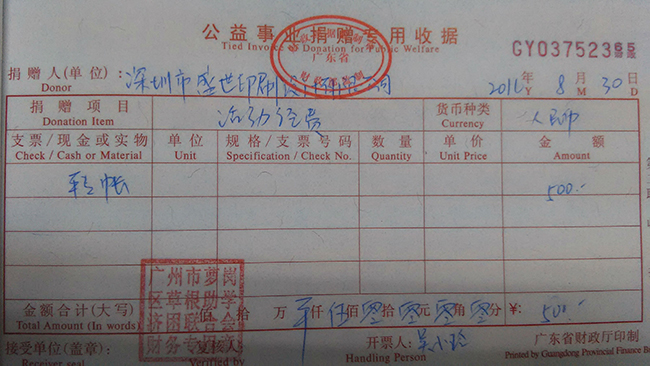 公益事业捐赠专用收据
Tied Invoice of Donation for Public Welfare
广东省
GY03752365
捐赠人(单位): 深圳市盛世印刷 公司 2016 年 8 月 30 日
Donor Y M D
捐赠项目 活动经费 货币种类 人民币
Donation Item Currency
支票/现金或实物 单位 规格/支票号码 数量 单价 金额
Check / Cash or Material Unit Specification / Check No. Quantity Unit Price Amount
转帐 500.-
广州市萝岗
区草根助学
济困联合会
财务专用章
金额合计(大写) 佰 拾 万 仟 伍佰 零拾 零元 零角 零分 ¥: 500.-
Total Amount (In words)
接受单位(盖章): 复核人: 开票人: 吴小玲 广东省财政厅印制
Receiver seal Verified by Handling Person Printed by Guangdong Provincial Finance